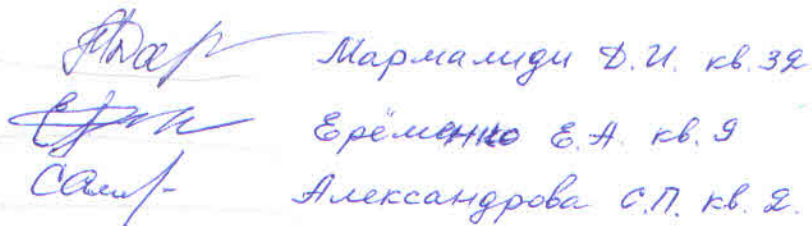 Мармалиди Д.И. кв. 32
Ерёменко Е.А. кв. 9
Александрова С.П. кв. 2.